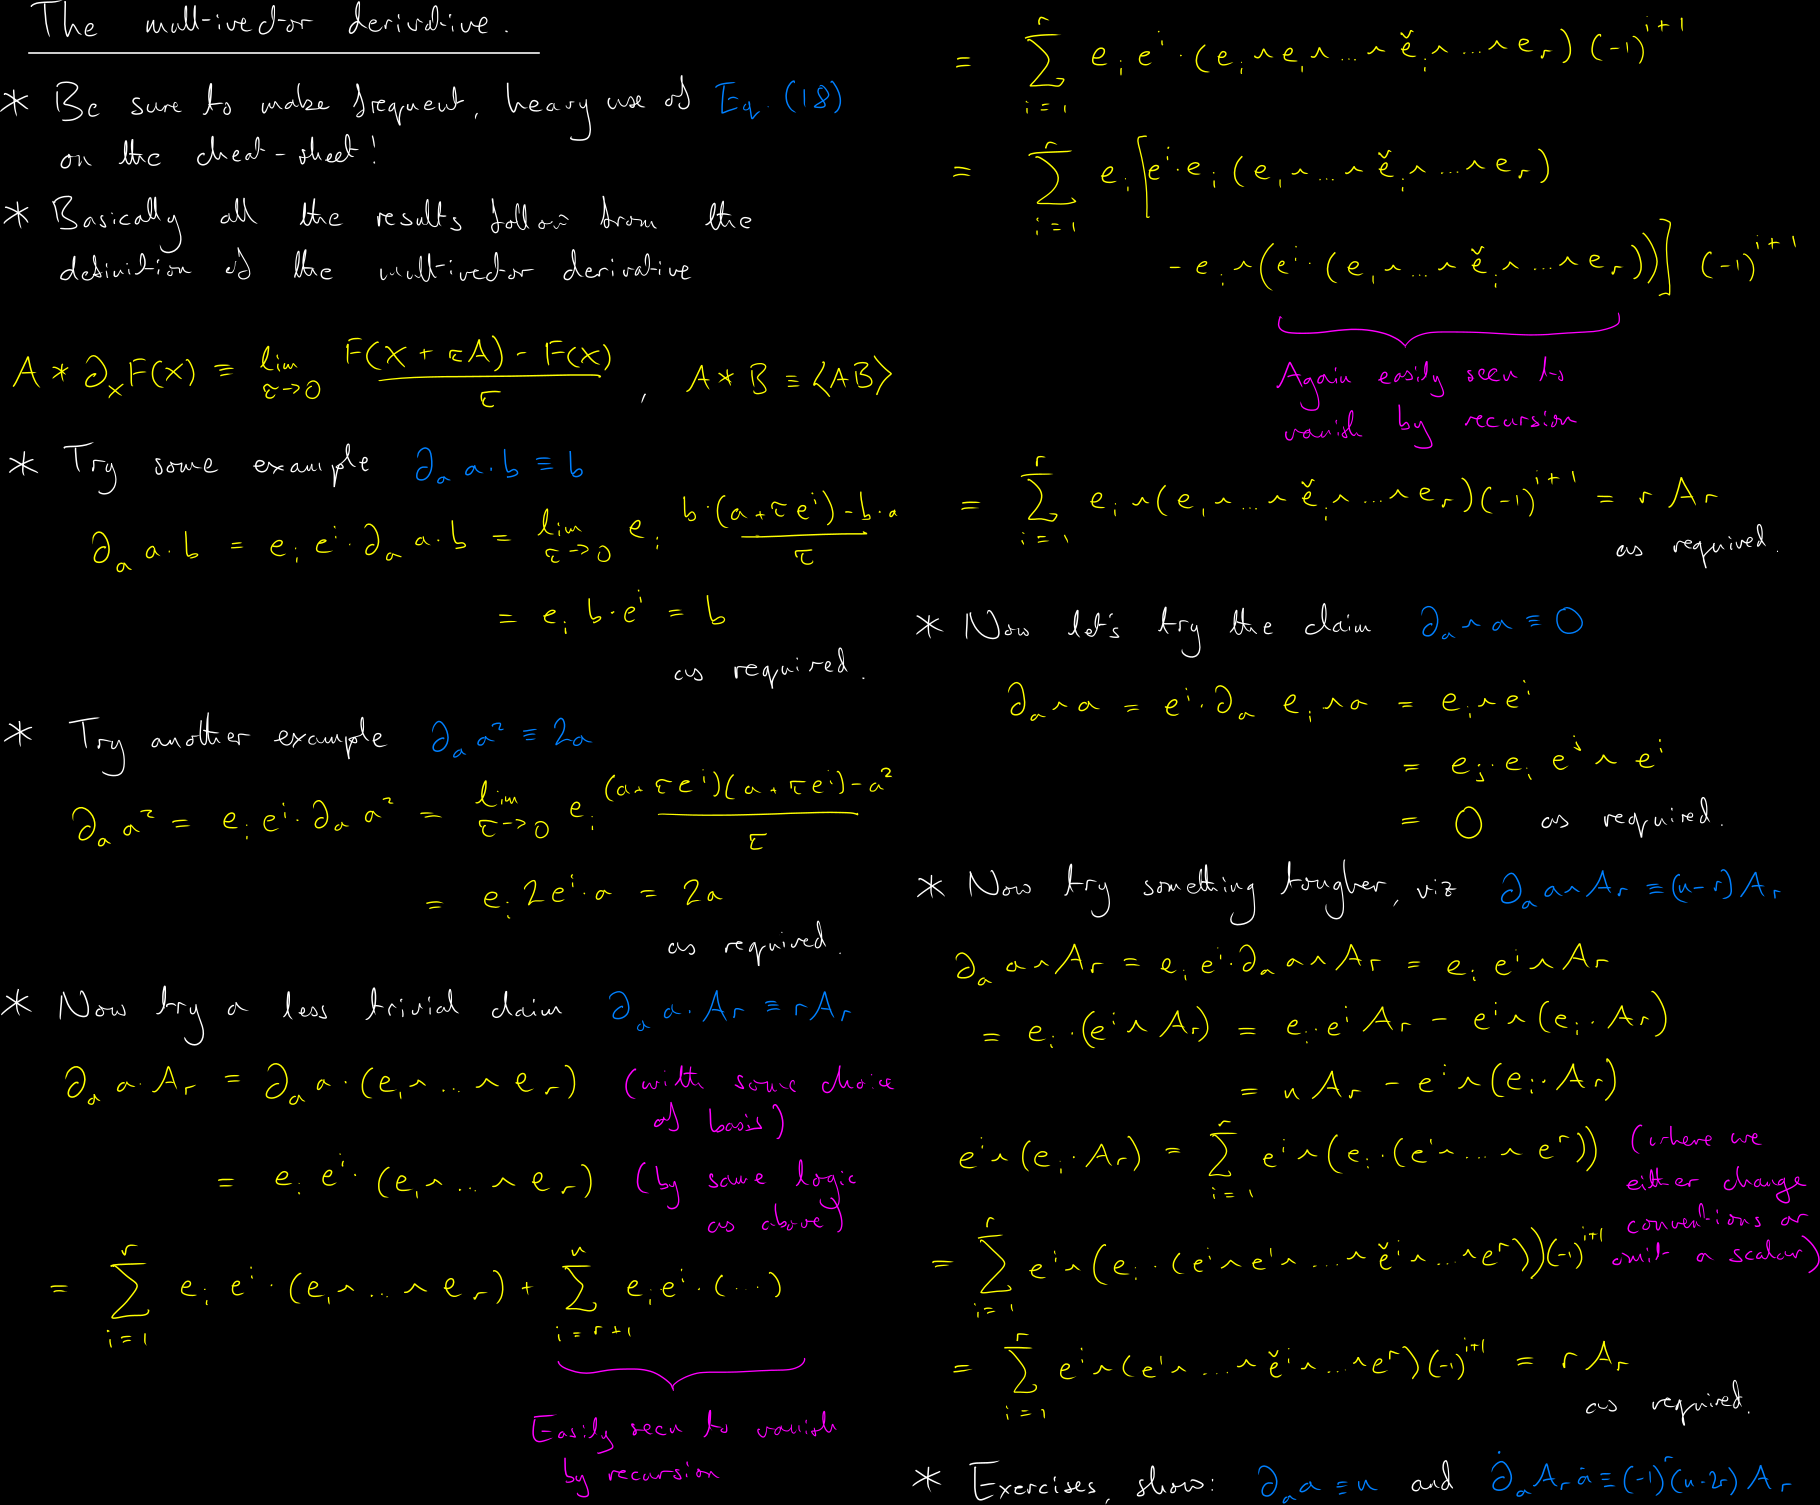 The multivector derivative.
* Be sure to make frequent, heavy use of Eq. (18)
on the cheat-sheet!
* Basically all the results follow from the
definition of the multivector derivative
A * ∂_X F(X) ≡ lim_{τ→0} (F(X + τA) - F(X))/τ , A * B ≡ ⟨AB⟩
* Try some example ∂_a a·b ≡ b
∂_a a·b = e_i e^i·∂_a a·b = lim_{τ→0} e_i (b·(a+τe^i) - b·a)/τ
= e_i b·e^i = b
as required.
* Try another example ∂_a a² ≡ 2a
∂_a a² = e_i e^i·∂_a a² = lim_{τ→0} e_i ((a+τe^i)(a+τe^i) - a²)/τ
= e_i 2e^i·a = 2a
as required.
* Now try a less trivial claim ∂_a a·A_r ≡ rA_r
∂_a a·A_r = ∂_a a·(e_1∧...∧e_r) (with some choice
of basis)
= e_i e^i·(e_1∧...∧e_r) (by same logic
as above)
= ∑_{i=1}^{r} e_i e^i·(e_1∧...∧e_r) + ∑_{i=r+1}^{n} e_i e^i·(...)
Easily seen to vanish
by recursion
= ∑_{i=1}^{r} e_i e^i·(e_i∧e_1∧...∧ě_i∧...∧e_r)(-1)^{i+1}
= ∑_{i=1}^{r} e_i[e^i·e_i(e_1∧...∧ě_i∧...∧e_r)
- e_i∧(e^i·(e_1∧...∧ě_i∧...∧e_r))] (-1)^{i+1}
Again easily seen to
vanish by recursion
= ∑_{i=1}^{r} e_i∧(e_1∧...∧ě_i∧...∧e_r)(-1)^{i+1} = r A_r
as required.
* Now let's try the claim ∂_a∧a ≡ 0
∂_a∧a = e^i·∂_a e_i∧a = e_i∧e^i
= e_j·e_i e^j∧e^i
= 0 as required.
* Now try something tougher, viz ∂_a a∧A_r ≡ (n-r)A_r
∂_a a∧A_r = e_i e^i·∂_a a∧A_r = e_i e^i∧A_r
= e_i·(e^i∧A_r) = e_i·e^i A_r - e^i∧(e_i·A_r)
= n A_r - e^i∧(e_i·A_r)
e^i∧(e_i·A_r) = ∑_{i=1}^{r} e^i∧(e_i·(e^1∧...∧e^r)) (where we
either change
conventions or
omit a scalar)
= ∑_{i=1}^{r} e^i∧(e_i·(e^i∧e^1∧...∧ě^i∧...∧e^r))(-1)^{i+1}
= ∑_{i=1}^{r} e^i∧(e^1∧...∧ě^i∧...∧e^r)(-1)^{i+1} = r A_r
as required.
* Exercises, show: ∂_a a ≡ n and ∂̇_a A_r ȧ ≡ (-1)^r (n-2r) A_r